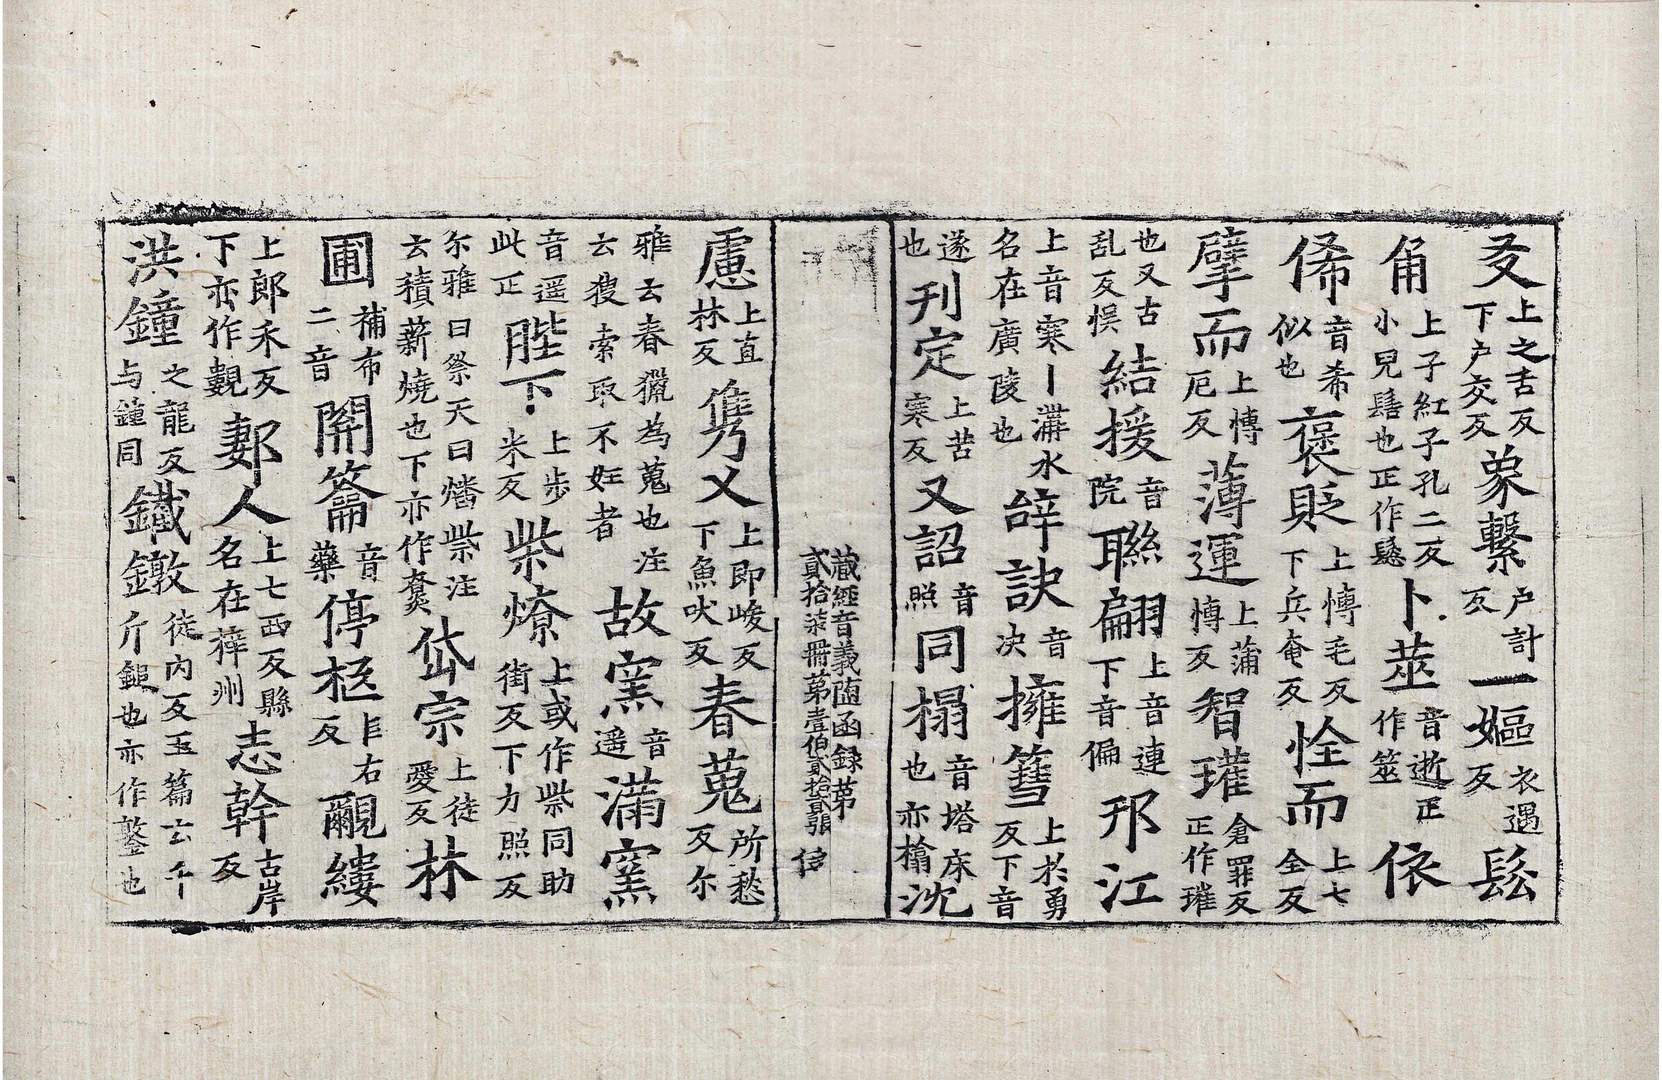 爻上之舌反下户交反象繫户計反一嫗衣遇反鬆
角上子紅子孔二反小兒髻也正作鬷卜莁音逝正作筮依
俙音希似也褒貶上愽毛反下兵奄反恮而上七全反
擘而上愽厄反薄運上蒲愽反智璀倉罪反正作璀
也又古乱反悮結援音院聯翩上音連下音偏邗江
上音寒丨溝水名在廣陵也辝訣音决擁篲上扵勇反下音
遂也刋定上苦寒反又詔音照同榻音塔床也亦㯓沈
蔵經音義随函録第貳拾柒冊第壹伯貳拾貳張 信
慮上直林反雋乂上即峻反下魚吠反春蒐所愁反尔
雅云春獵為蒐也注云獀索取不妊者故窯音遥滿窯
音遥此正陛下上步米反柴燎上或作祡同助街反下力照反
尔雅曰祭天曰燔祡注云積薪燒也下亦作尞岱宗上徒愛反林
圃補布二音開籥音藥停柩巨右反覼縷
上郎禾反下亦作覶郪人上七西反縣名在梓州志幹古岸反
洪鐘之龍反与鍾同鐵鐓徒内反玉篇云千斤鎚也亦作䥞也